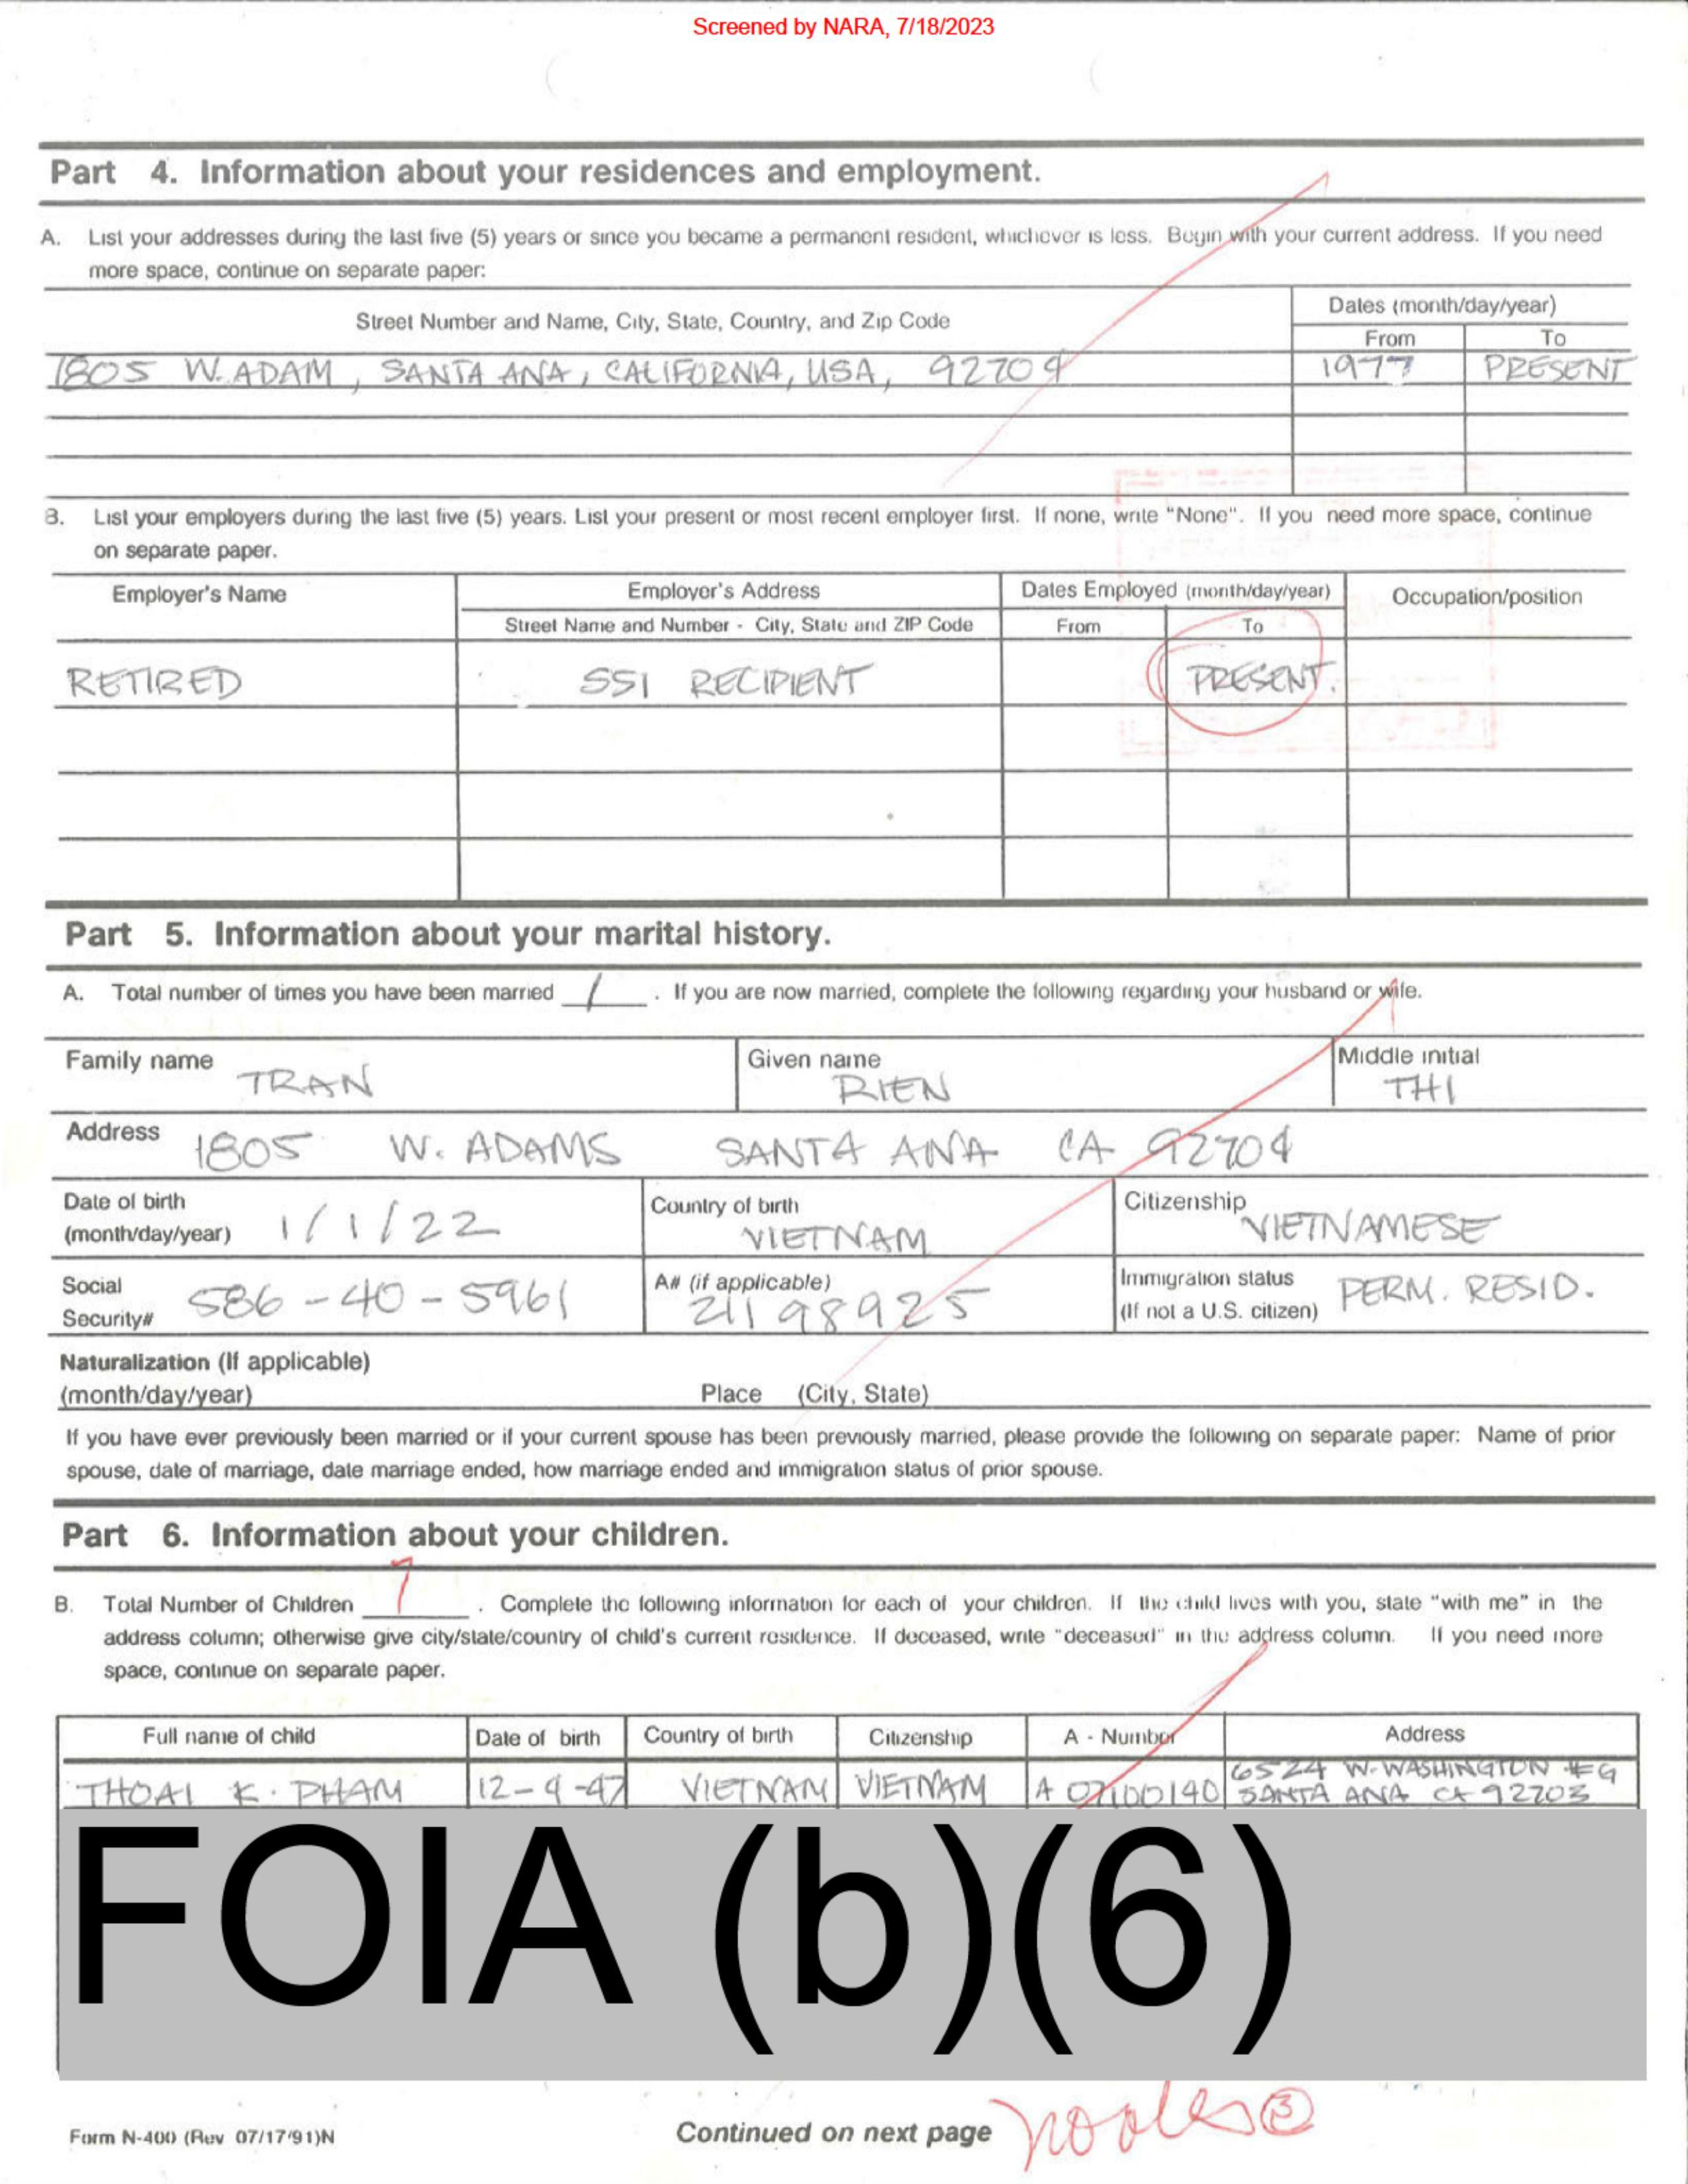 Screened by NARA, 7/18/2023
Part 4. Information about your residences and employment.
A. List your addresses during the last five (5) years or since you became a permanent resident, whichever is less. Begin with your current address. If you need
more space, continue on separate paper:
Street Number and Name, City, State, Country, and Zip Code
Dates (month/day/year)
From To
1805 W. ADAM, SANTA ANA, CALIFORNIA, USA, 92704 1977 PRESENT
B. List your employers during the last five (5) years. List your present or most recent employer first. If none, write "None". If you need more space, continue
on separate paper.
Employer's Name Employer's Address Dates Employed (month/day/year) Occupation/position
Street Name and Number - City, State and ZIP Code From To
RETIRED SSI RECIPIENT PRESENT.
Part 5. Information about your marital history.
A. Total number of times you have been married 1. If you are now married, complete the following regarding your husband or wife.
Family name TRAN Given name RIEN Middle initial THI
Address 1805 W. ADAMS SANTA ANA CA 92704
Date of birth
(month/day/year) 1/1/22 Country of birth VIETNAM Citizenship VIETNAMESE
Social
Security# 586-40-5961 A# (if applicable) 21198925 Immigration status
(If not a U.S. citizen) PERM. RESID.
Naturalization (If applicable)
(month/day/year) Place (City, State)
If you have ever previously been married or if your current spouse has been previously married, please provide the following on separate paper: Name of prior
spouse, date of marriage, date marriage ended, how marriage ended and immigration status of prior spouse.
Part 6. Information about your children.
B. Total Number of Children 7. Complete the following information for each of your children. If the child lives with you, state "with me" in the
address column; otherwise give city/state/country of child's current residence. If deceased, write "deceased" in the address column. If you need more
space, continue on separate paper.
Full name of child Date of birth Country of birth Citizenship A - Number Address
THOAI K. PHAM 12-9-47 VIETNAM VIETNAM A 07100140 6524 W. WASHINGTON #G
SANTA ANA CA 92703
FOIA (b)(6)
Form N-400 (Rev 07/17/91)N
Continued on next page